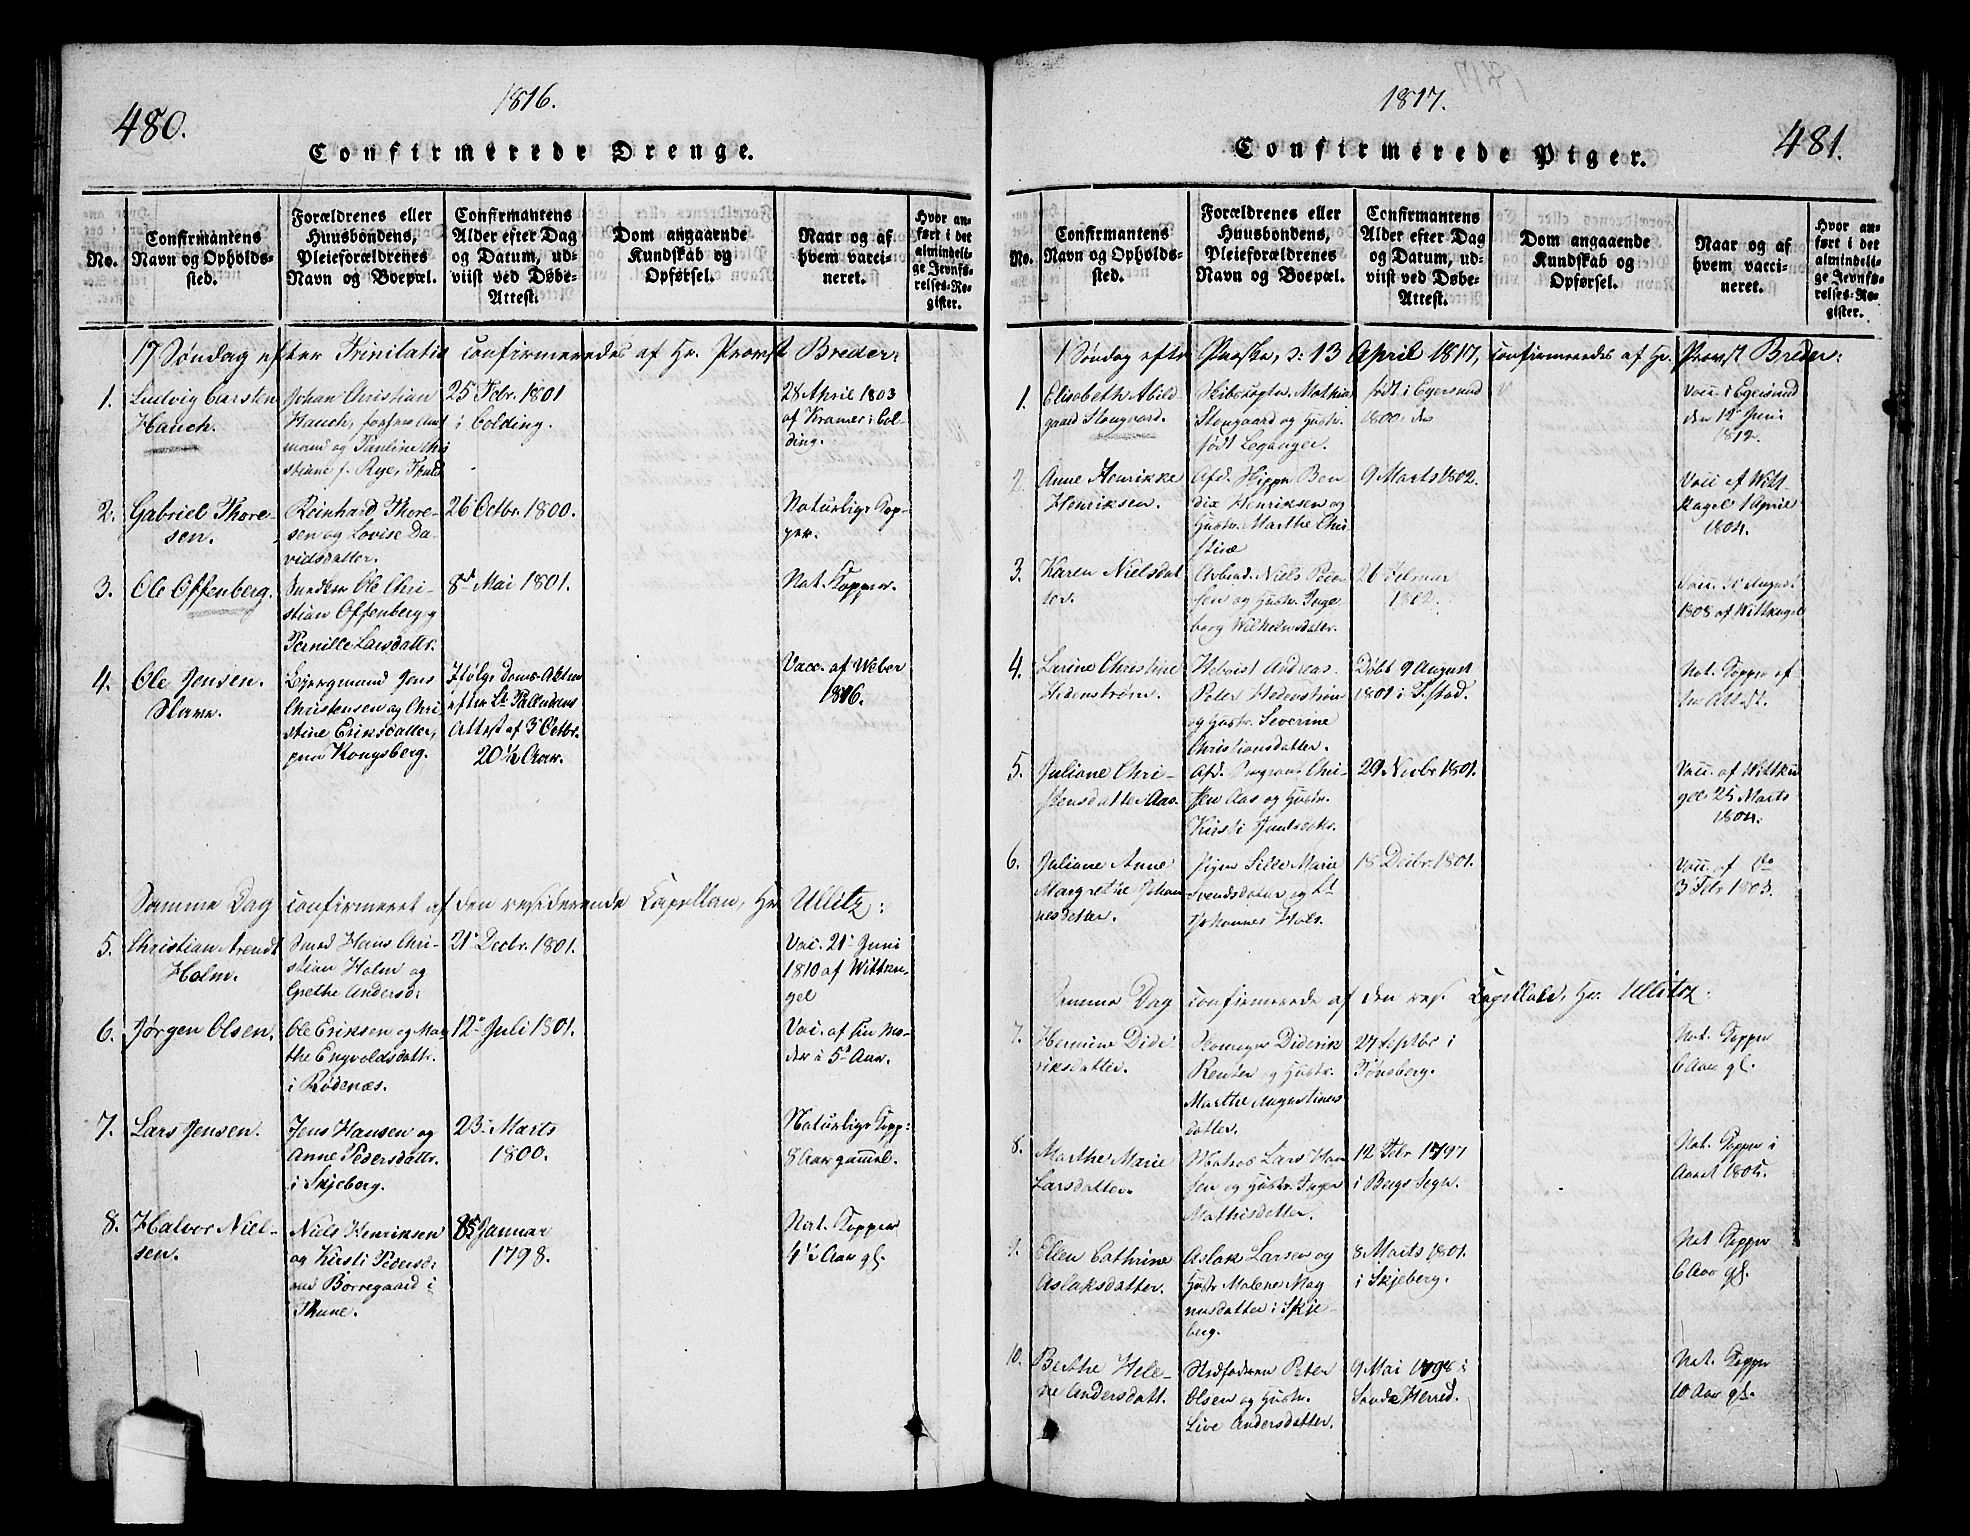 480.
1816.
Confirmerede Drenge.
No.
Confirmantens
Navn og Opholds-
sted.
Forældrenes eller
Huusbondens,
Pleieforældrenes
Navn og Boepæl.
Confirmantens
Alder efter Dag
og Datum, ud-
viist ved Døbe-
Attest.
Dom angaaende
Kundskab og
Opførsel.
Naar og af
hvem vacci-
neret.
Hvor an-
ført i det
almindeli-
ge Jevnfø-
relses-Re-
gister.
17 Søndag efter Trinitatis confirmeredes af Hr. Provst Breder:
1.
Ludvig Carsten
Hauch.
Johan Christian
Hauch, forhen Amt
mand og Pauline Chri
stiane f. Rye,
25 Febr. 1801
i Colding.
28 April 1803
af Kramer i Col-
ding.
2.
Gabriel Thore-
sen.
Reinhard Thore-
sen og Lovise Da-
vidsdatter.
26 Octbr. 1800.
Naturlige Kop-
per.
3.
Ole Offenberg.
Ole Chri-
stian Offenberg og
Pernille Larsdattr.
8d Mai 1801.
Nat. Kopper.
4.
Ole Jensen.
Slave.
Bjergmand Jens
Christensen og Chri
stine Eriksdatter,
paa Kongsberg.
Ifølge Doms-Akten
efter Lt.
Attest af 3 Octbr.
20½ Aar.
Vacc. af Weber
1816.
Samme Dag confirmeret af den residerende Capellan, Hr. Ullitz:
5.
Christian Arendt
Holm.
Smed Hans Chri-
stian Holm og
Grethe Andersd:
21 Decbr. 1801.
Vac. 21 Juni
1810 af Wittku-
gel
6.
Jørgen Olsen.
Ole Eriksen og Mar
the Engvoldsdattr.
i Rødenæs.
12 Juli 1801.
Vac. af sin Mo-
der i 5 Aar.
7.
Lars Jensen.
Jens Hansen og
Anne Pedersdattr.
i Skjeberg.
23 Marts
1800.
Naturlige Kopp:
8 Aar gammel.
8.
Halvor Niel-
sen.
Niels Henriksen
og Kirsti Pedersd:
ved Borregaard i
Thune.
Januar
1798.
Nat. Kopper
4½ Aar gl.
481.
1817.
Confirmerede Piger.
No.
Confirmantens
Navn og Opholds-
sted.
Forældrenes eller
Huusbondens,
Pleieforældrenes
Navn og Boepæl.
Confirmantens
Alder efter Dag
og Datum, ud-
viist ved Døbe-
Attest.
Dom angaaende
Kundskab og
Opførsel.
Naar og af
hvem vacci-
neret.
Hvor an-
ført i det
almindeli-
ge Jevnfø-
relses-Re-
gister.
1 Søndag efter Paaske, d: 13 April 1817, confirmeredes af Hr. Provst Breder:
1.
Elisabeth Abild
gaard Stougaard.
Mathias
Stougaard og Hustr.
født Leganger.
født i Egersund
1800.
Vacc. i Egersund
den 12 Juni
1812.
2.
Anne Henrikke
Henriksen.
Afd. Ben
dix Henriksen og
Hustr. Marthe Chri
stine
9 Marts 1802.
Vacc af Witt
kugel 1 April
1804.
3.
Karen Nielsdat
ter.
Arbmd. Niels Peter
sen og Hustr. Inge
borg Wilhelmsdater.
26 Februar
1802.
Vacc. August
1808 af Wittkugel
4.
Larine Christine
Hedenstrøm.
Andreas
Peter Hedenstrøm
og Hustr. Severine
Christiansdatter.
Døbt 9 August
1801 i F.stad.
Nat. Kopper ef
ter Attest.
5.
Juliane Chri-
stensdatter Aas.
Afd. Chri-
sten Aas og Hustr.
Kirsti
29 Novbr 1801.
Vacc. af Wittku
gel 25 Marts
1804.
6.
Juliane Anne
Margrethe Johan
nesdatter.
Pigen Sille Marie
Svendsdater og Lt
Johannes
18 Decbr. 1801.
Vacc. af do
3 Febr 1803.
Samme Dag confirmerede af den res. Capellan, Hr. Ullitz:
7.
Hermine Dide
riksdatter.
Diderik
Reuter og Hustr.
Marthe Augustinus
datter.
27 Septbr i
Tønsberg.
Nat. Kopper
6 Aar gl.
8.
Marthe Marie
Larsdatter.
Matros Lars Han
sen og Hustr. Inger
Mathisdatter.
12 Febr 1797
i Bergs Sogn.
Nat. Kopper i
Aaret
9.
Ellen Cathrine
Aslaksdatter.
Aslak Larsen og
Hustr Malene Mag
nusdatter i Skje-
berg.
8 Marts 1801.
i Skjeberg.
Nat Kopper
6 Aar gl.
10.
Berthe Hele-
ne Andersdatt.
Stedfaderen Peter
Olsen og Hustr.
Live Andersdatter.
9 Mai 1798 i
Sande Herred.
Nat. Kopper
10 Aar gl.